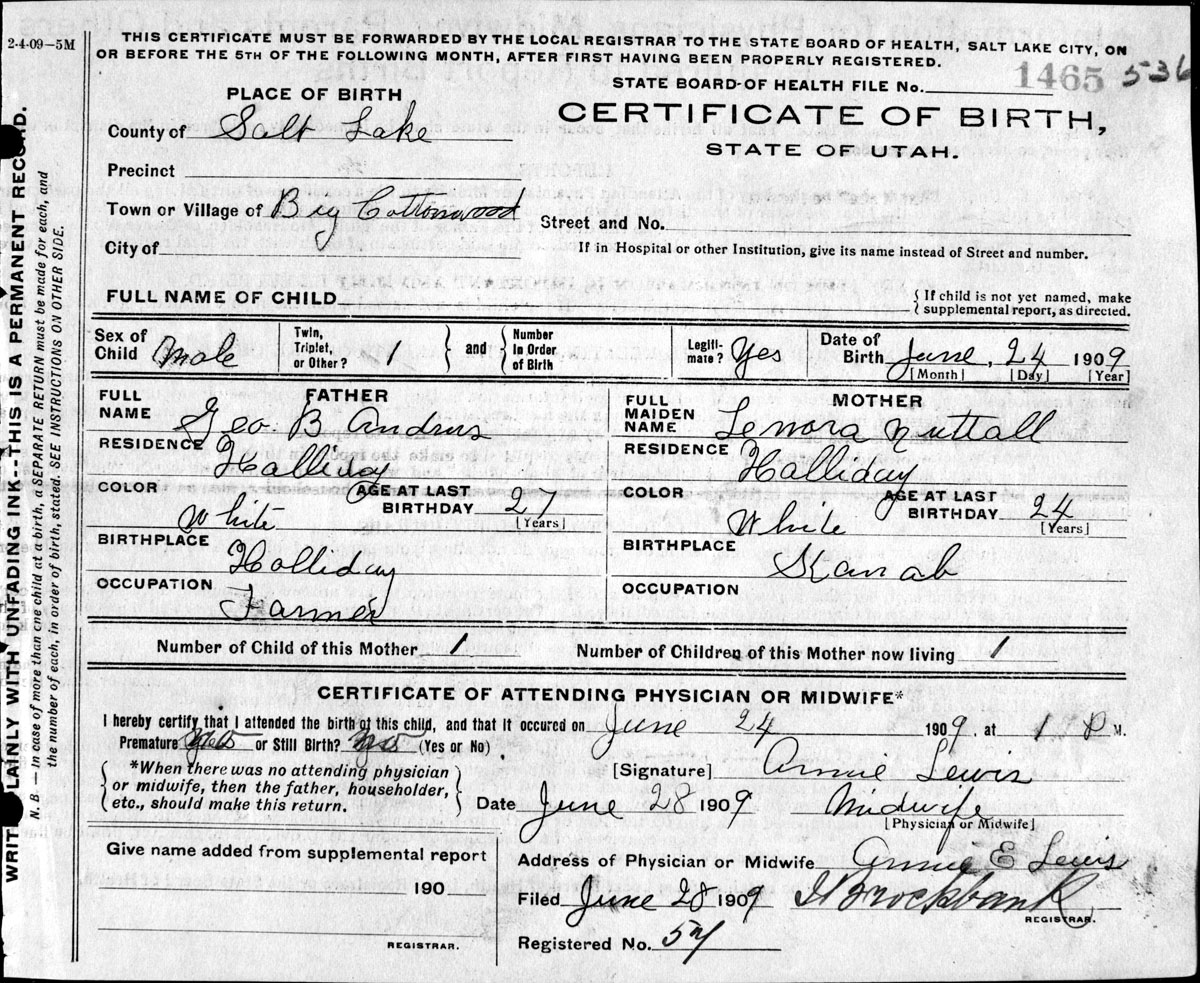 2-4-09—5M
THIS CERTIFICATE MUST BE FORWARDED BY THE LOCAL REGISTRAR TO THE STATE BOARD OF HEALTH, SALT LAKE CITY, ON
OR BEFORE THE 5TH OF THE FOLLOWING MONTH, AFTER FIRST HAVING BEEN PROPERLY REGISTERED.
1465 536
STATE BOARD OF HEALTH FILE No.
PLACE OF BIRTH
CERTIFICATE OF BIRTH,
STATE OF UTAH.
County of Salt Lake
Precinct
Town or Village of Big Cottonwood
Street and No.
City of
If in Hospital or other Institution, give its name instead of Street and number.
FULL NAME OF CHILD
{ If child is not yet named, make
supplemental report, as directed.
Sex of Child Male
Twin, Triplet, or Other? 1 } and { Number In Order of Birth
Legiti-mate? Yes
Date of Birth June, 24 1909
[Month] [Day] [Year]
FATHER
FULL NAME Geo. B Andrus
RESIDENCE Halliday
COLOR White
AGE AT LAST BIRTHDAY 27
[Years]
BIRTHPLACE Halliday
OCCUPATION Farmer
MOTHER
FULL MAIDEN NAME Lenora Nuttall
RESIDENCE Halliday
COLOR White
AGE AT LAST BIRTHDAY 24
[Years]
BIRTHPLACE Kanab
OCCUPATION
Number of Child of this Mother 1
Number of Children of this Mother now living 1
CERTIFICATE OF ATTENDING PHYSICIAN OR MIDWIFE*
I hereby certify that I attended the birth of this child, and that it occured on June 24 1909, at 1 P M.
Premature or Still Birth? No (Yes or No)
{ *When there was no attending physician
or midwife, then the father, householder,
etc., should make this return. }
[Signature] Annie Lewis
Date June 28 1909 Midwife
[Physician or Midwife]
Give name added from supplemental report
190
REGISTRAR.
Address of Physician or Midwife Annie E Lewis
Filed June 28 1909 Brockbank
REGISTRAR.
Registered No. 57
WRITE PLAINLY WITH UNFADING INK—THIS IS A PERMANENT RECORD.
N. B. — In case of more than one child at a birth, a SEPARATE RETURN must be made for each, and
the number of each, in order of birth, stated. SEE INSTRUCTIONS ON OTHER SIDE.